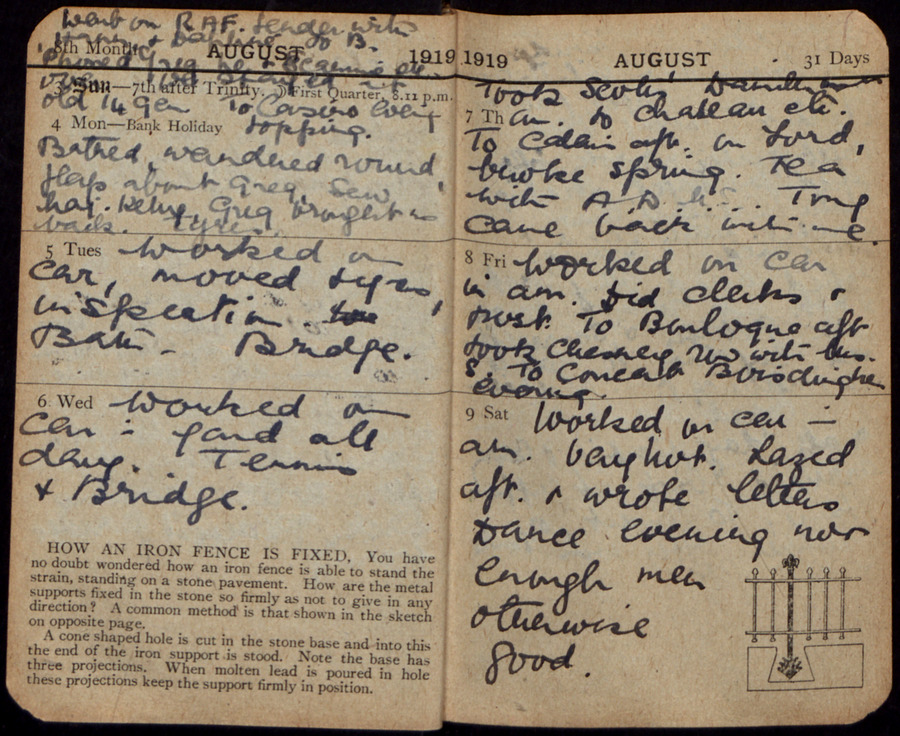 Went on R.A.F. tender with
8th Month AUGUST 1919
3 Sun—7th after Trinity. First Quarter, 8.11 p.m.
old 14 gen To Casino evening
4 Mon—Bank Holiday topping.
Bathed, wandered round,
flap about Greg. Saw
Greg brought us
back. Tyres.
5 Tues Worked on
car, moved tyres,
inspection.
Bath. Bridge.
6 Wed Worked on
car - yard all
day. Tennis
& Bridge.
HOW AN IRON FENCE IS FIXED. You have
no doubt wondered how an iron fence is able to stand the
strain, standing on a stone pavement. How are the metal
supports fixed in the stone so firmly as not to give in any
direction? A common method is that shown in the sketch
on opposite page.
A cone shaped hole is cut in the stone base and into this
the end of the iron support is stood. Note the base has
three projections. When molten lead is poured in hole
these projections keep the support firmly in position.
1919 AUGUST 31 Days
Took
7 Th am. to chateau etc.
To Calais aft. in Ford,
broke spring. Tea
with
came back with me.
8 Fri Worked on car
in am. Did clerks &
post. To Boulogne aft
took Chesney
S. To Concert
evening.
9 Sat Worked on car —
am. Very hot. Lazed
aft. & wrote letters
Dance evening not
enough men
otherwise
good.